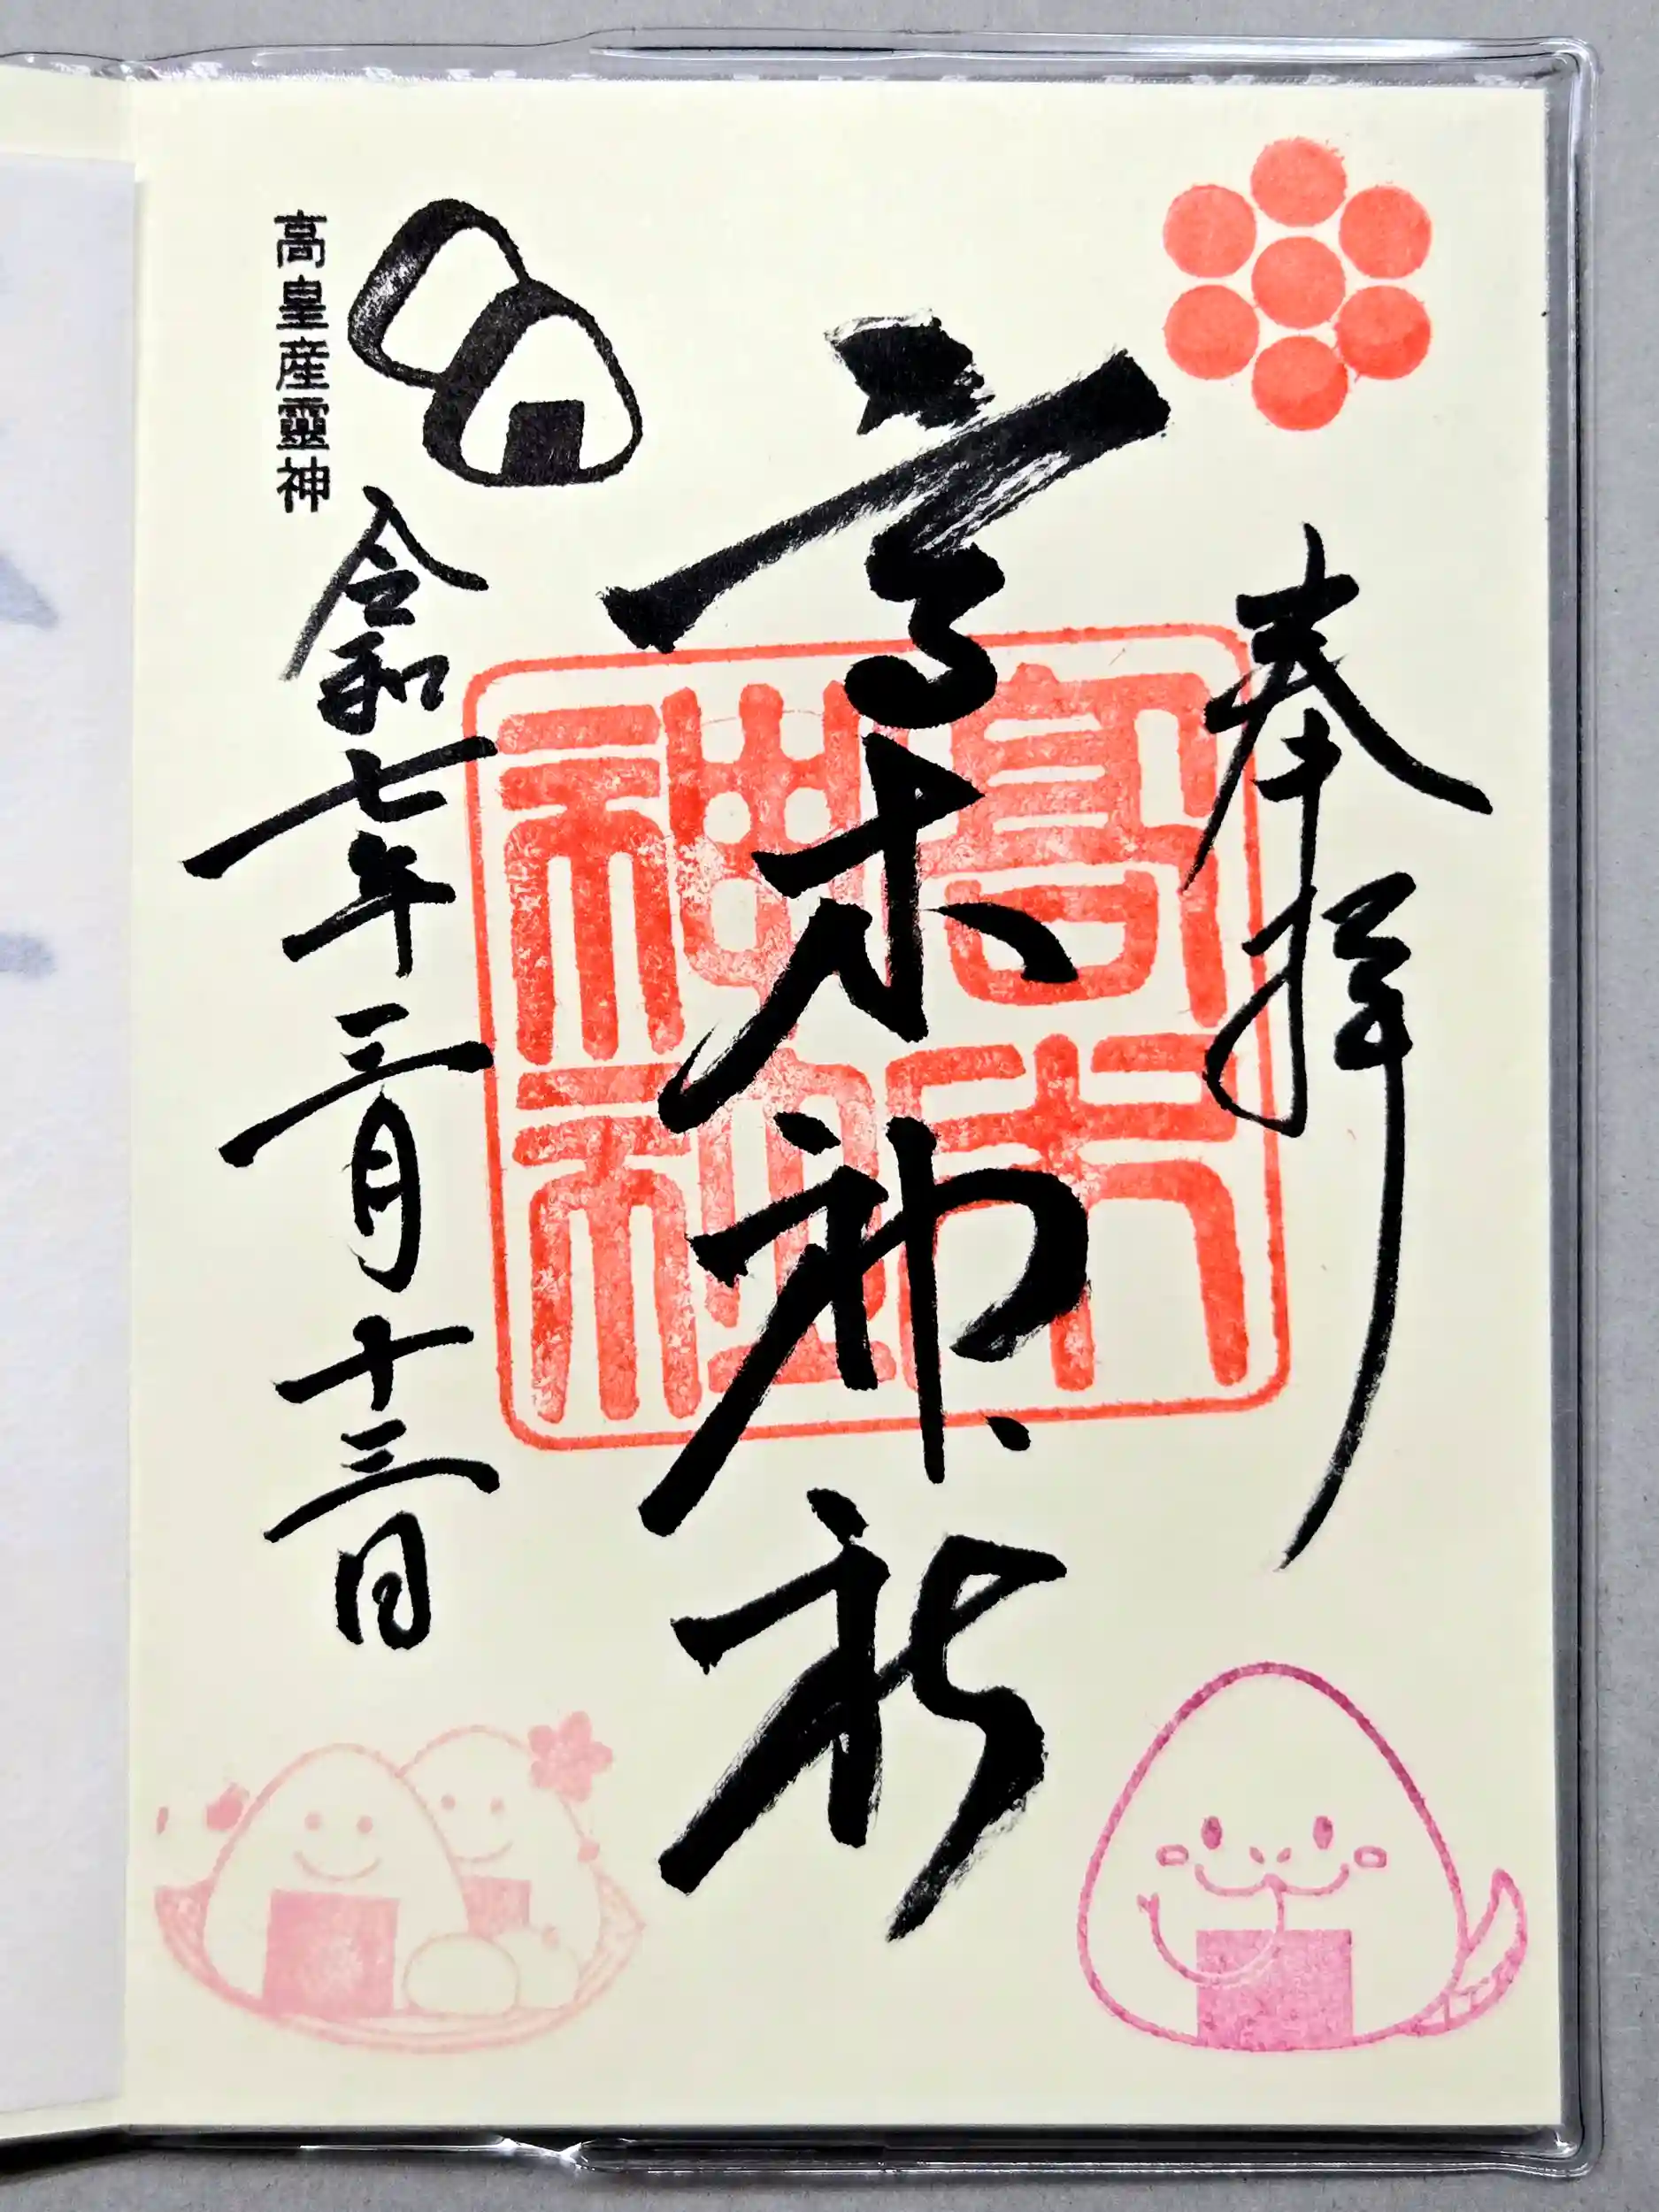 奉拝
高木神社
高木神社
令和七年三月十三日
高皇産靈神